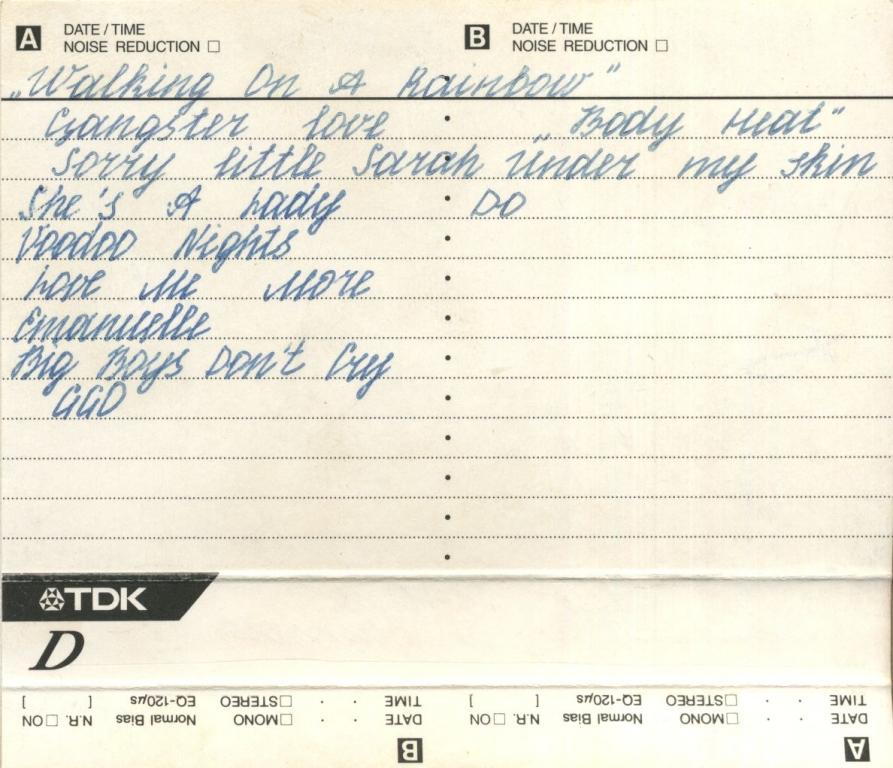 A DATE / TIME
NOISE REDUCTION
B DATE / TIME
NOISE REDUCTION
„Walking On A Rainbow"
Gangster love
Sorry little Sarah
She's A Lady
Voodoo Nights
Love Me More
Emanuelle
Big Boys Don't Cry
GGO
„Body Heat"
Under my skin
DO
TDK
D
A DATE · · MONO Normal Bias N.R. ON
TIME · · STEREO EQ-120µs [ ]
B DATE · · MONO Normal Bias N.R. ON
TIME · · STEREO EQ-120µs [ ]